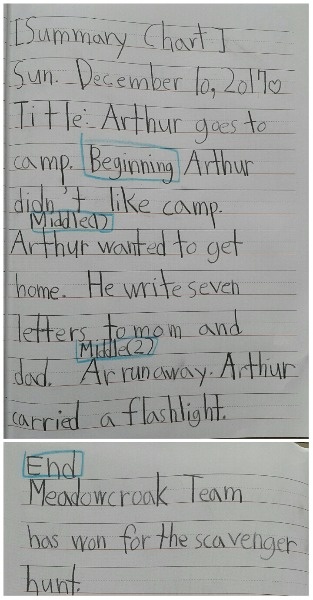 [Summary Chart]
Sun. December 10, 2017♡
Title: Arthur goes to
camp. Beginning Arthur
didn't like camp.
Middle(1)
Arthur wanted to get
home. He write seven
letters to mom and
Middle(2)
dad. Ar run away. Arthiur
carried a flashlight.
End
Meadowcroak Team
has won for the scavenger
hunt.